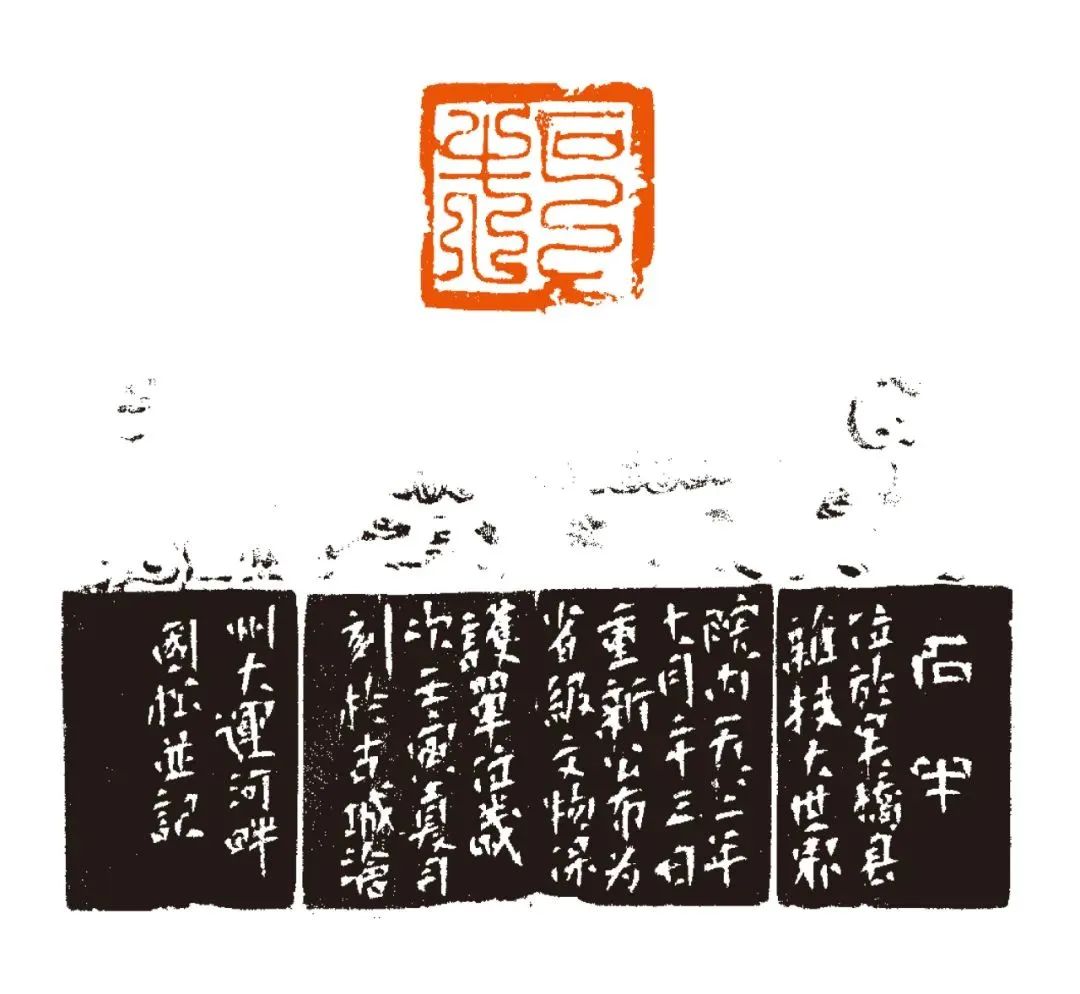 石牛
位於吴橋县
雜技大世界
院内一九八二年
七月二十三日
重新公布为
省級文物保
護單位歲
次壬寅夏月
刻於古城滄
州大運河畔
國松並記